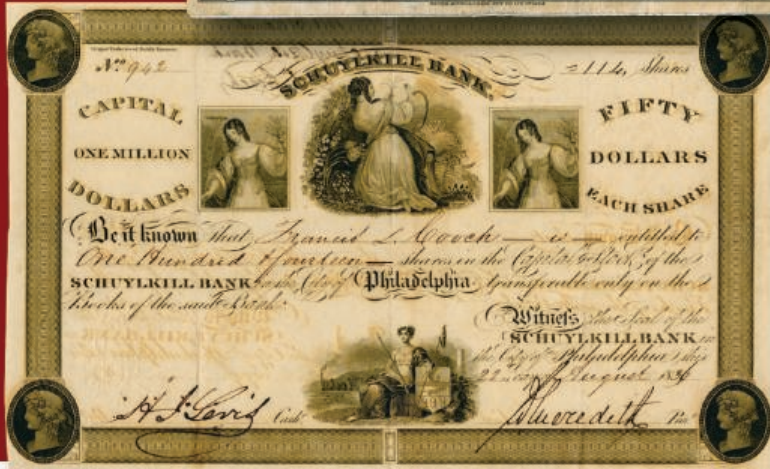 No 942
SCHUYLKILL BANK.
114, Shares
CAPITAL
ONE MILLION
DOLLARS
FIFTY
DOLLARS
EACH SHARE
Be it known that Francis L. Gooch is entitled to
One Hundred & fourteen shares in the Capital Stock of the
SCHUYLKILL BANK in the City of Philadelphia transferable only on the
Books of the said Bank.
Witness the Seal of the
SCHUYLKILL BANK in
the City of Philadelphia this
22 day of August 1836
H. J. Levis Cash
Meredith